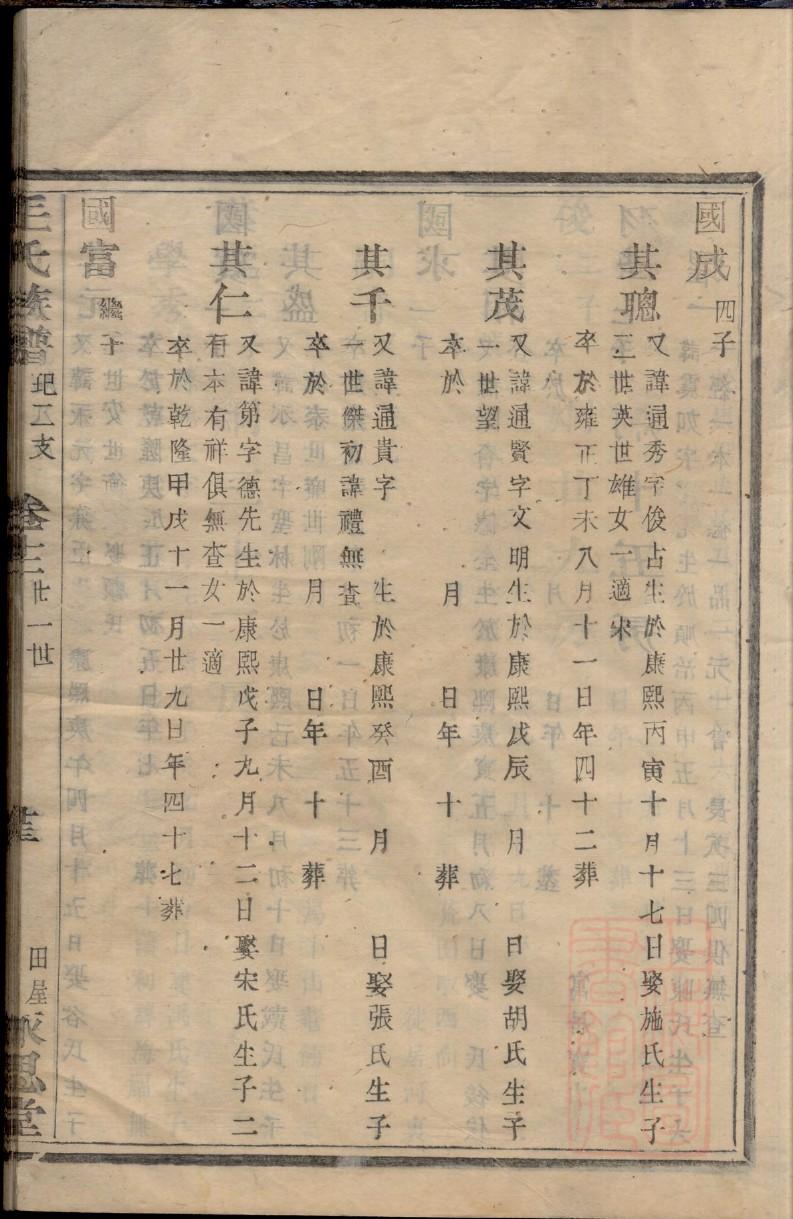 國成 四子
其聰 又諱通秀字俊占生於康熙丙寅十月十七日娶施氏生子
二世英世雄女一適宋
卒於雍正丁未八月十一日年四十二葬
其茂 又諱通賢字文明生於康熙戊辰 月 日娶胡氏生子
一世望
卒於 月 日年 十 葬
其千 又諱通貴字 生於康熙癸酉 月 日娶張氏生子
一世傑初諱禮無查
卒於 月 日年 十 葬
其仁 又諱第字德先生於康熙戊子九月十二日娶宋氏生子二
有本有祥俱無查女一適
卒於乾隆甲戌十一月廿九日年四十七葬
國富 繼子
王氏族譜 玘五支 卷十三 廿一世 田屋 永思堂